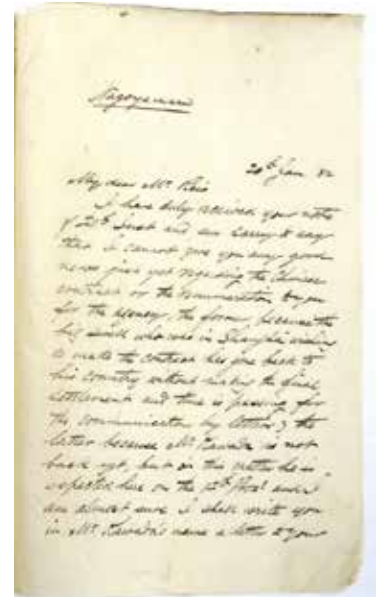 Nagoya maru
20th Jan 82
My dear Mr
I have duly received your note
of 20th Inst and am sorry to say
that I cannot give you any good
news just yet regarding the Chinese
contract or the remuneration to you
for the agency, the former because the
who was in Shanghai
to make the contract has gone back to
his country without making the final
settlement and time is passing for
the communication by letters; the
latter because Mr Kawada is not
back yet, but on this matter he is
expected here on the and I
am almost sure I shall write you
in Mr Kawada's name a letter to your